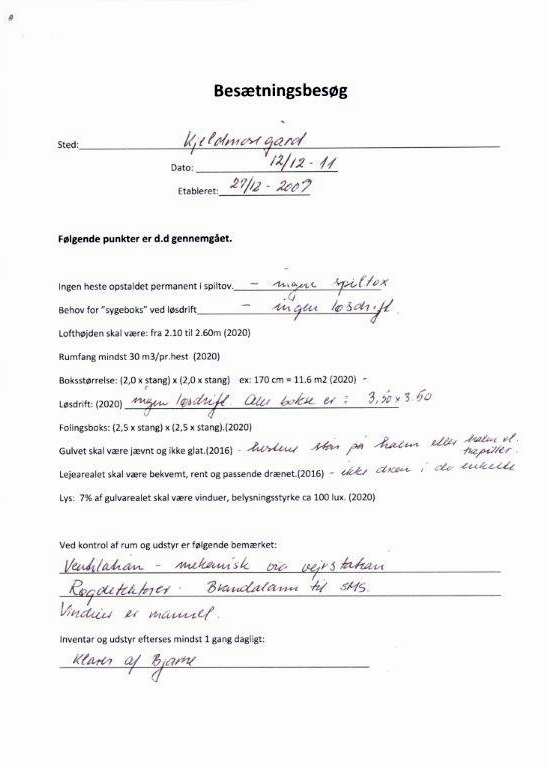 Besætningsbesøg
Sted: Kjeldmosegård
Dato: 12/12 - 11
Etableret: 27/12 - 2007
Følgende punkter er d.d gennemgået.
Ingen heste opstaldet permanent i spiltov. - ingen spiltov
Behov for "sygeboks" ved løsdrift - ingen løsdrift.
Lofthøjden skal være: fra 2.10 til 2.60m (2020)
Rumfang mindst 30 m3/pr.hest (2020)
Boksstørrelse: (2,0 x stang) x (2,0 x stang) ex: 170 cm = 11.6 m2 (2020) -
Løsdrift: (2020) ingen løsdrift. Alle bokse er : 3,50 x 3.50
Folingsboks: (2,5 x stang) x (2,5 x stang).(2020)
Gulvet skal være jævnt og ikke glat.(2016) - hestene står på halm eller halm el. træpiller.
Lejearealet skal være bekvemt, rent og passende drænet.(2016) - ikke dræn i de enkelte
Lys: 7% af gulvarealet skal være vinduer, belysningsstyrke ca 100 lux. (2020)
Ved kontrol af rum og udstyr er følgende bemærket:
Ventilation - mekanisk via vejrstation
Røgdetektorer. Brandalarm til SMS.
Vinduer er manuel.
Inventar og udstyr efterses mindst 1 gang dagligt:
Klares af Bjarne